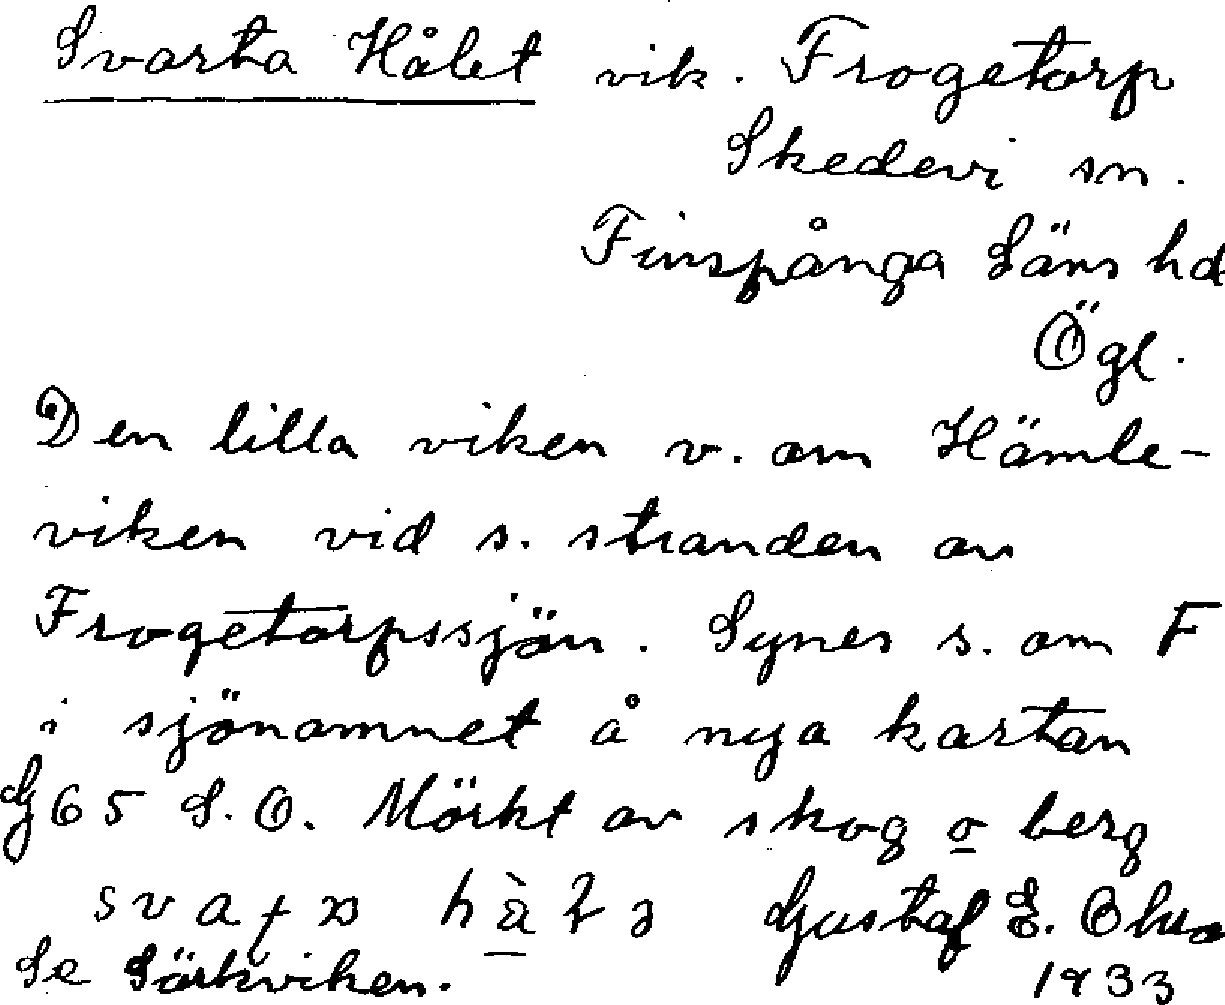 Svarta Hålet vik. Frogetorp
Skedevi sn.
Finspånga Läns hd
Ögl.
Den lilla viken v. om Hämle-
viken vid s. stranden av
Frogetorpssjön. Synes s. om F
i sjönamnet å nya kartan
G65 S.O. Mörkt av skog o berg
Gustaf E. Ohls
Se Särkviken. 1933